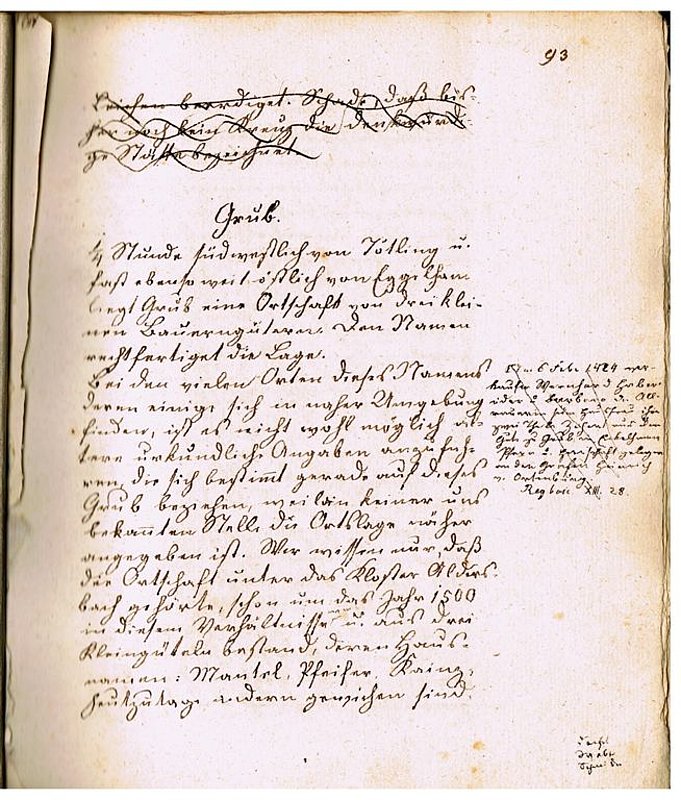 93
Leichen beerdiget. Schade, daß bis-
her noch kein Kreuz die denkwürdi-
ge Stätte bezeichnet.
Grub.
¼ Stunde südwestlich von Tötling u.
fast ebenso weit östlich von Eggelham
liegt Grub eine Ortschaft von drei klei-
nen Bauerngütern. Den Namen
rechtfertiget die Lage.
Bei den vielen Orten dieses Namens
deren einige sich in naher Umgebung
finden, ist es nicht wohl möglich äl-
tere urkundliche Angaben anzufüh-
ren, die sich bestimmt gerade auf dieses
Grub beziehen, weil in keiner uns
bekannten Stelle die Ortslage näher
angegeben ist. Wir wissen nur, daß
die Ortschaft unter das Kloster Alders-
bach gehörte, schon um das Jahr 1500
in diesem Verhältnisse u. aus drei
Kleingüteln bestand, deren Haus-
namen: Mantel, Pfeifer, Kainz,
heutzutage andern gewichen sind.
6 Febr. 1424 ver-
kaufen Wernhard
u.
ihr
Zehent aus dem
Gute zu Grub in
Pfarr u. Herrschaft gelegen
an den Grafen Heinrich
v. Ortenburg.
Reg boic. XIII. 28.